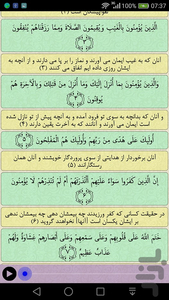 07:37
الَّذِينَ يُؤْمِنُونَ بِالْغَيْبِ وَيُقِيمُونَ الصَّلَاةَ وَمِمَّا رَزَقْنَاهُمْ يُنْفِقُونَ
﴿٣﴾
آنان که به غیب ایمان می آورند و نماز را بر پا می دارند و از آنچه به
ایشان روزی داده ایم انفاق می کنند (۳)
وَالَّذِينَ يُؤْمِنُونَ بِمَا أُنْزِلَ إِلَيْكَ وَمَا أُنْزِلَ مِنْ قَبْلِكَ وَبِالْآخِرَةِ هُمْ
يُوقِنُونَ ﴿٤﴾
و آنان که بدانچه به سوی تو فرود آمده و به آنچه پیش از تو نازل شده
است ایمان می آورند و آنانند که به آخرت یقین دارند (۴)
أُولَئِكَ عَلَى هُدًى مِنْ رَبِّهِمْ وَأُولَئِكَ هُمُ الْمُفْلِحُونَ ﴿٥﴾
آنان برخوردار از هدایتی از سوی پروردگار خویشند و آنان همان
رستگارانند (۵)
إِنَّ الَّذِينَ كَفَرُوا سَوَاءٌ عَلَيْهِمْ أَأَنْذَرْتَهُمْ أَمْ لَمْ تُنْذِرْهُمْ لَا
يُؤْمِنُونَ ﴿٦﴾
در حقیقت کسانی که کفر ورزیدند چه بیمشان دهی چه بیمشان ندهی
بر ایشان یکسان است [آنها] نخواهند گروید (۶)
خَتَمَ اللَّهُ عَلَى قُلُوبِهِمْ وَعَلَى سَمْعِهِمْ وَعَلَى أَبْصَارِهِمْ غِشَاوَةٌ وَلَهُمْ
عَذَابٌ عَظِيمٌ ﴿٧﴾